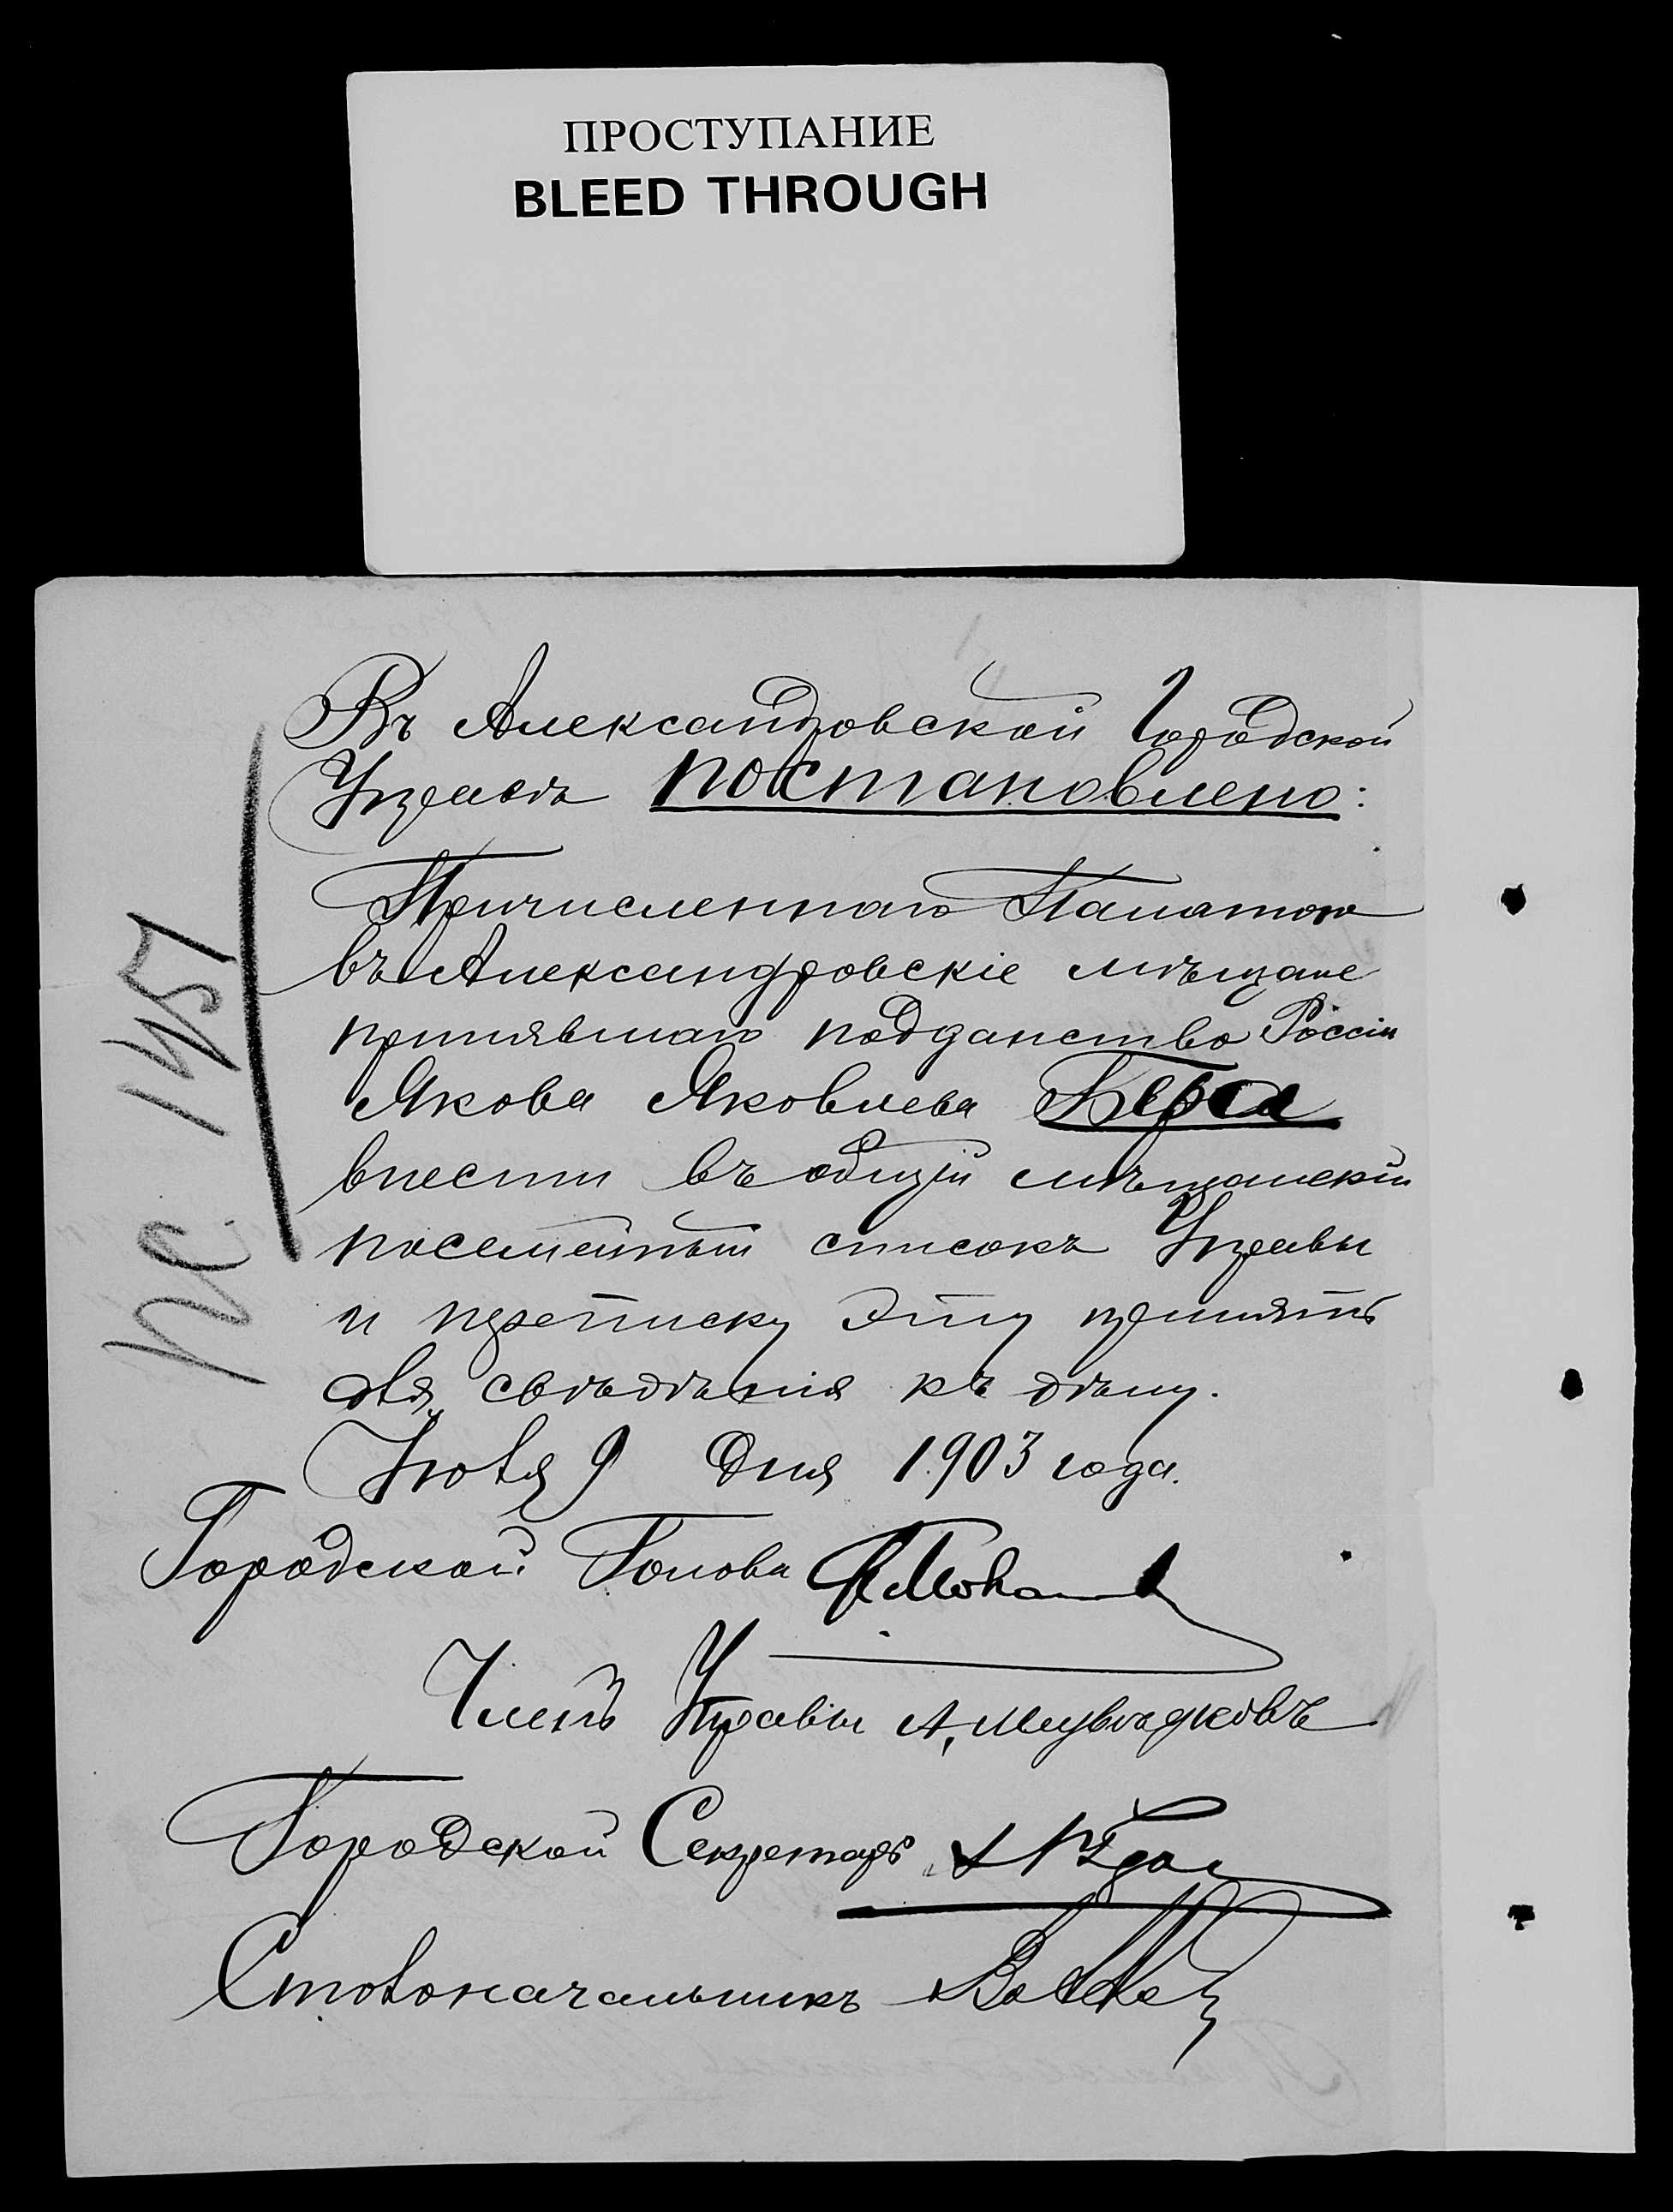 ПРОСТУПАНИЕ
BLEED THROUGH
Въ Александровской Городской
Управѣ постановлено:
Причисленнаго Палатою
въ Александровскіе мѣщане
принявшаго подданство Россіи
Якова Яковлева Берга
внести въ общій мѣщанскій
посемейный списокъ Управы
и переписку эту принять
для свѣдѣнія къ дѣлу.
Іюля 9 дня 1903 года.
Городской Голова
Членъ Управы А.
Городской Секретарь
Столоначальникъ